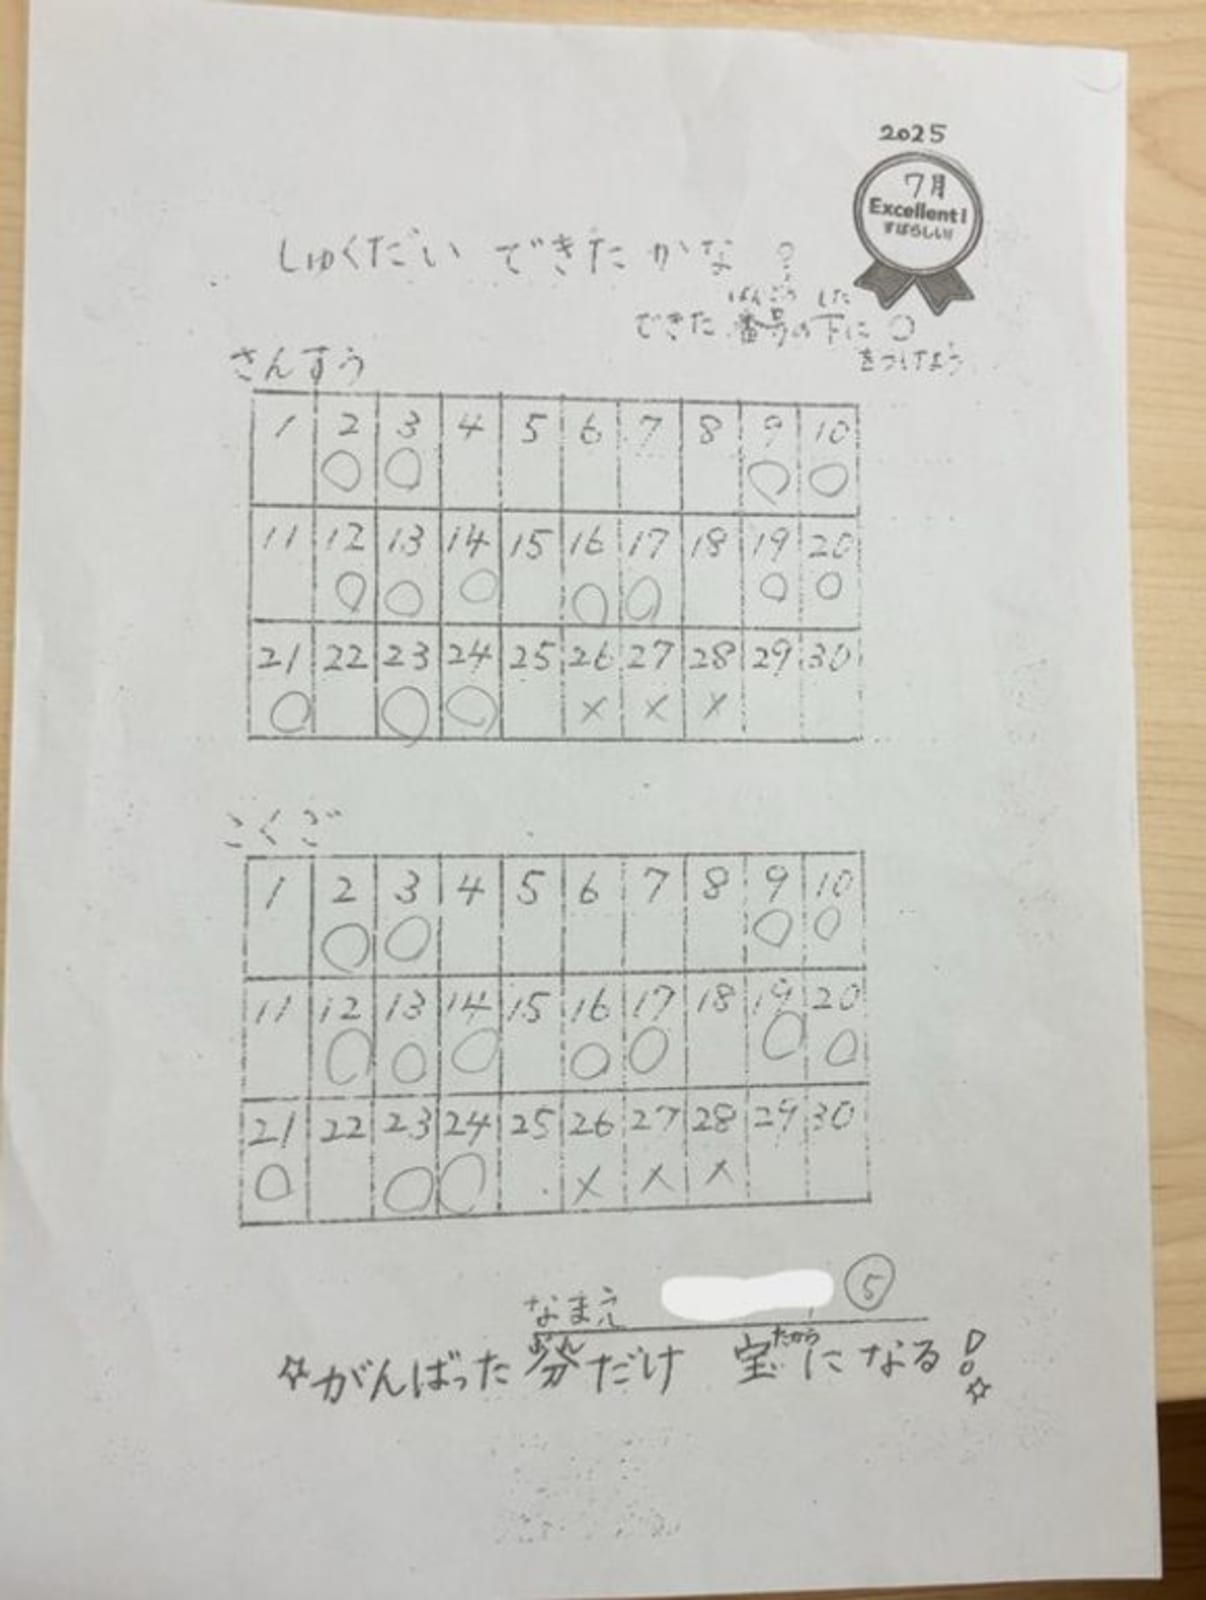 2025
7月
Excellent!
すばらしい!!
しゅくだい できたかな?
ばんごう した
できた 番号の下に ○
をつけよう
さんすう
1 2 3 4 5 6 7 8 9 10
○ ○ ○ ○
11 12 13 14 15 16 17 18 19 20
○ ○ ○ ○ ○ ○ ○
21 22 23 24 25 26 27 28 29 30
○ ○ ○ × × ×
こくご
1 2 3 4 5 6 7 8 9 10
○ ○ ○ ○
11 12 13 14 15 16 17 18 19 20
○ ○ ○ ○ ○ ○ ○
21 22 23 24 25 26 27 28 29 30
○ ○ ○ × × ×
なまえ ⑤
ぶん たから
☆がんばった分だけ 宝になる!☆